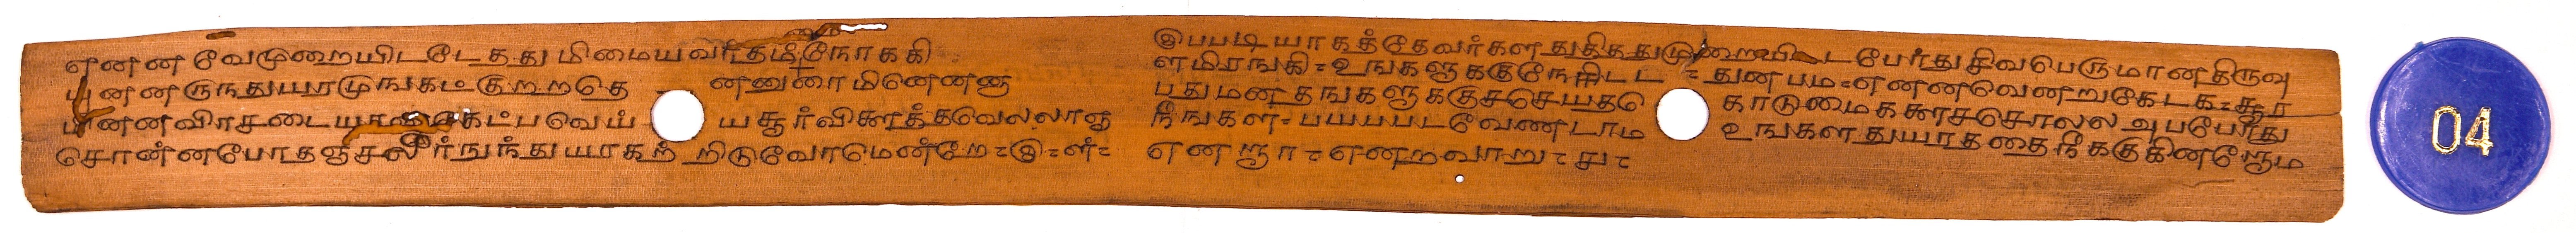 எனன வேமுறையிடடேதது மிமையவர்தமநோககி
முனனருநதுயரமுஙகட குறறதெ னனுரைமினெனன
பினனவிரசடையானகெட்பவெய் யசூர்விகரத்தவெலலாஞ
சொன்னபோதஞசலீர்நுந்துயரகற் றிடுவோமென்றே உ ள்
இபபடியாகத்தேவர்களதுதிதது முறையிடடபோதுசிவபெருமானதிருவு
ளமிரஙகி உஙகளுககுநேரிடட துனபம எனனவெனறுகேடக சூர
பதுமனதஙகளுககுசசெயதகொ காடுமைகளசசொலல அபபோது
நீஙகள பயபபடவேணடாம உஙகளதுயரததைநீககுகினறோம
எனறா எனறவாறு சு
04